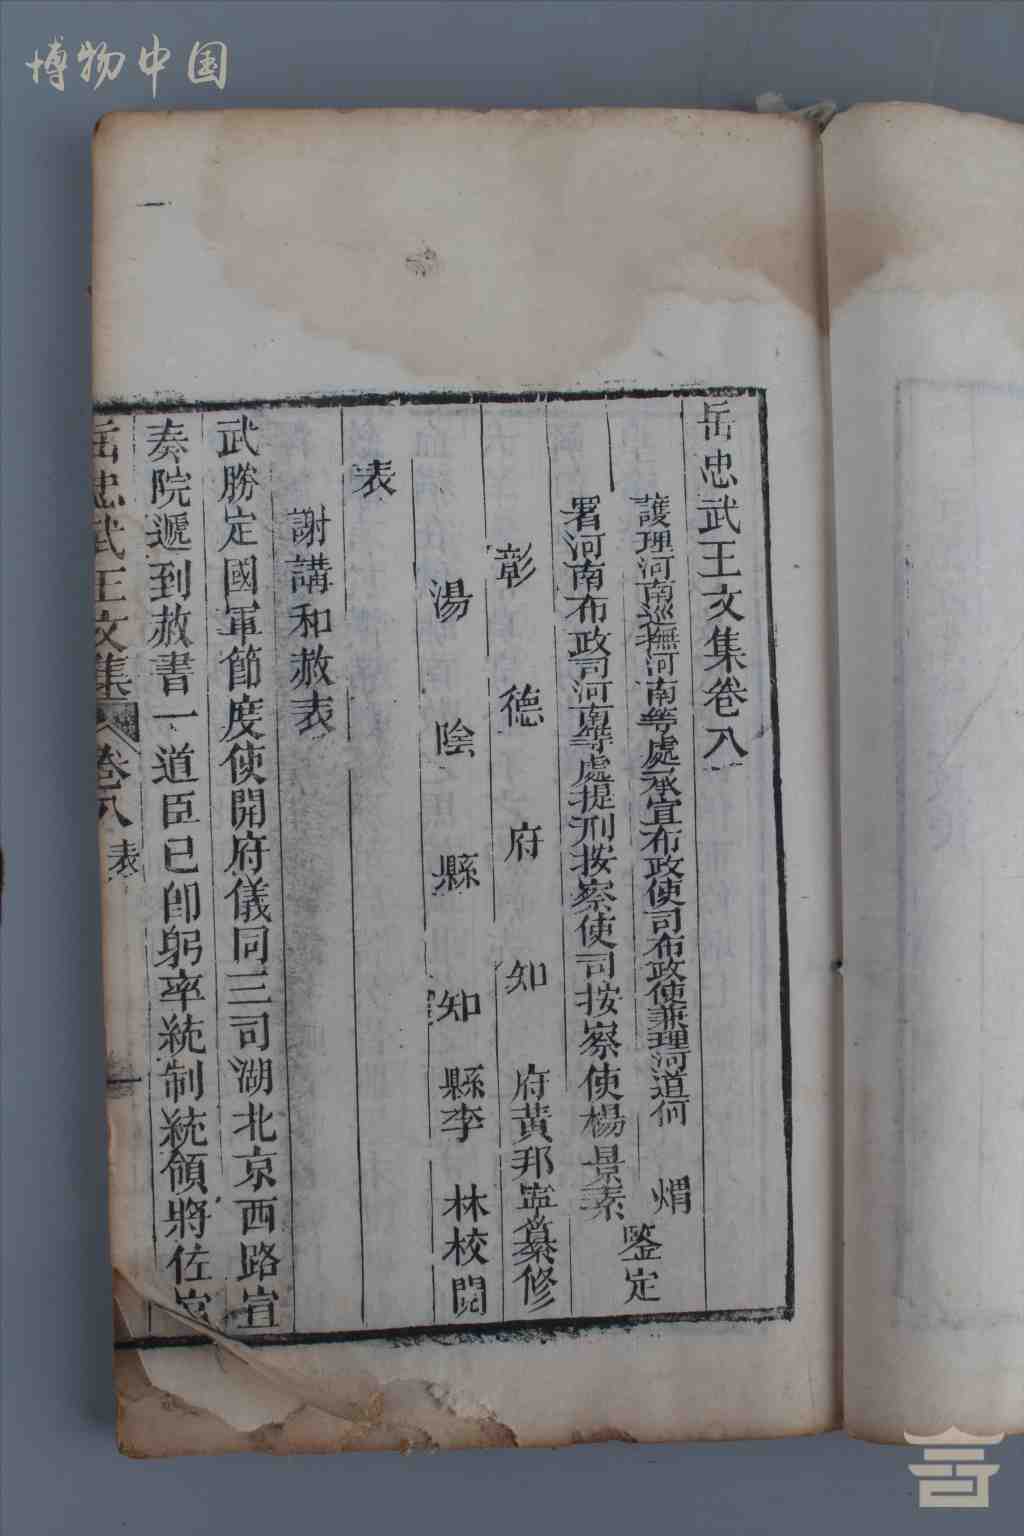 博物中国
岳忠武王文集卷八
護理河南巡撫河南等處承宣布政使司布政使兼理河道何 煟
署河南布政司河南等處提刑按察使司按察使楊景素
鑒定
彰德府知府黃邦寧纂修
湯陰縣知縣李 林校閱
表
謝講和赦表
武勝定國軍節度使開府儀同三司湖北京西路宣
奏院遞到赦書一道臣已卽躬率統制統領將佐官
岳忠武王文集 卷八 表 一